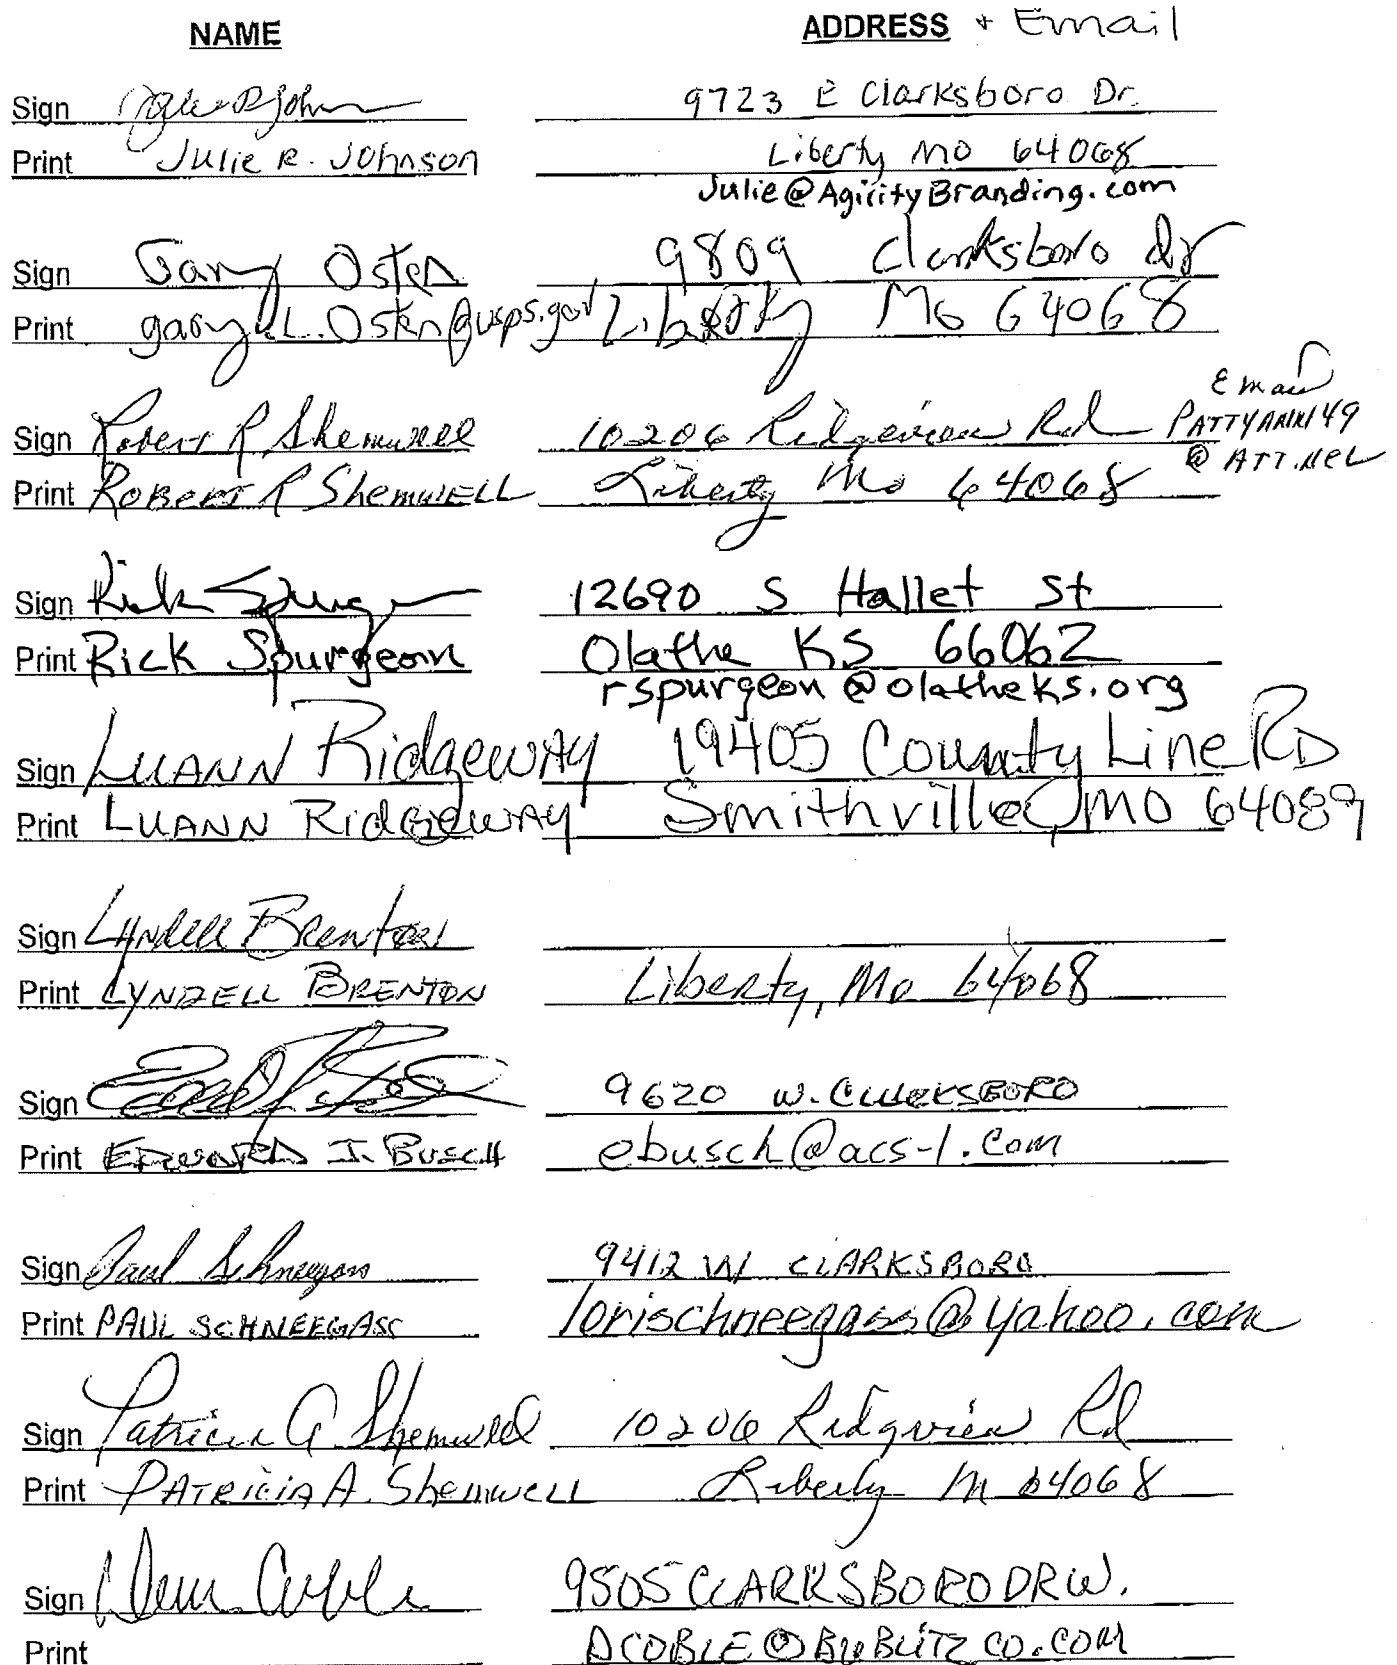 NAME ADDRESS + Email
Sign Julie R John 9723 E Clarksboro Dr.
Print Julie R. Johnson Liberty MO 64068
Julie@AgilityBranding.com
Sign Gary Osten 9809 Clarksboro dr
Print gary.L.Osten@usps.gov Liberty Mo 64068
Email
Sign Robert R Shemwell 10206 Ridgeview Rd PATTYANN149
@ ATT.NET
Print ROBERT R SHEMWELL Liberty Mo 64068
Sign Rick Spurgeon 12690 S Hallet St
Print Rick Spurgeon Olathe KS 66062
rspurgeon@olatheks.org
Sign LUANN RidgewAy 19405 County Line RD
Print LUANN RidgewAy Smithville, MO 64089
Sign Lyndell Brenton
Print LYNDELL BRENTON Liberty, Mo 64068
Sign 9620 W. CLARKSBORO
Print EDWARD J. BUSCH ebusch@acs-1.com
Sign Paul Schneegass 9412 W CLARKSBORO
Print PAUL SCHNEEGASS lorischneegass@yahoo.com
Sign Patricia A Shemwell 10206 Ridgview Rd
Print PATRICIA A. Shemwell Liberty M 64068
Sign 9505 CLARKSBORO DR W.
Print DCOBLE@BUBLITZCO.COM